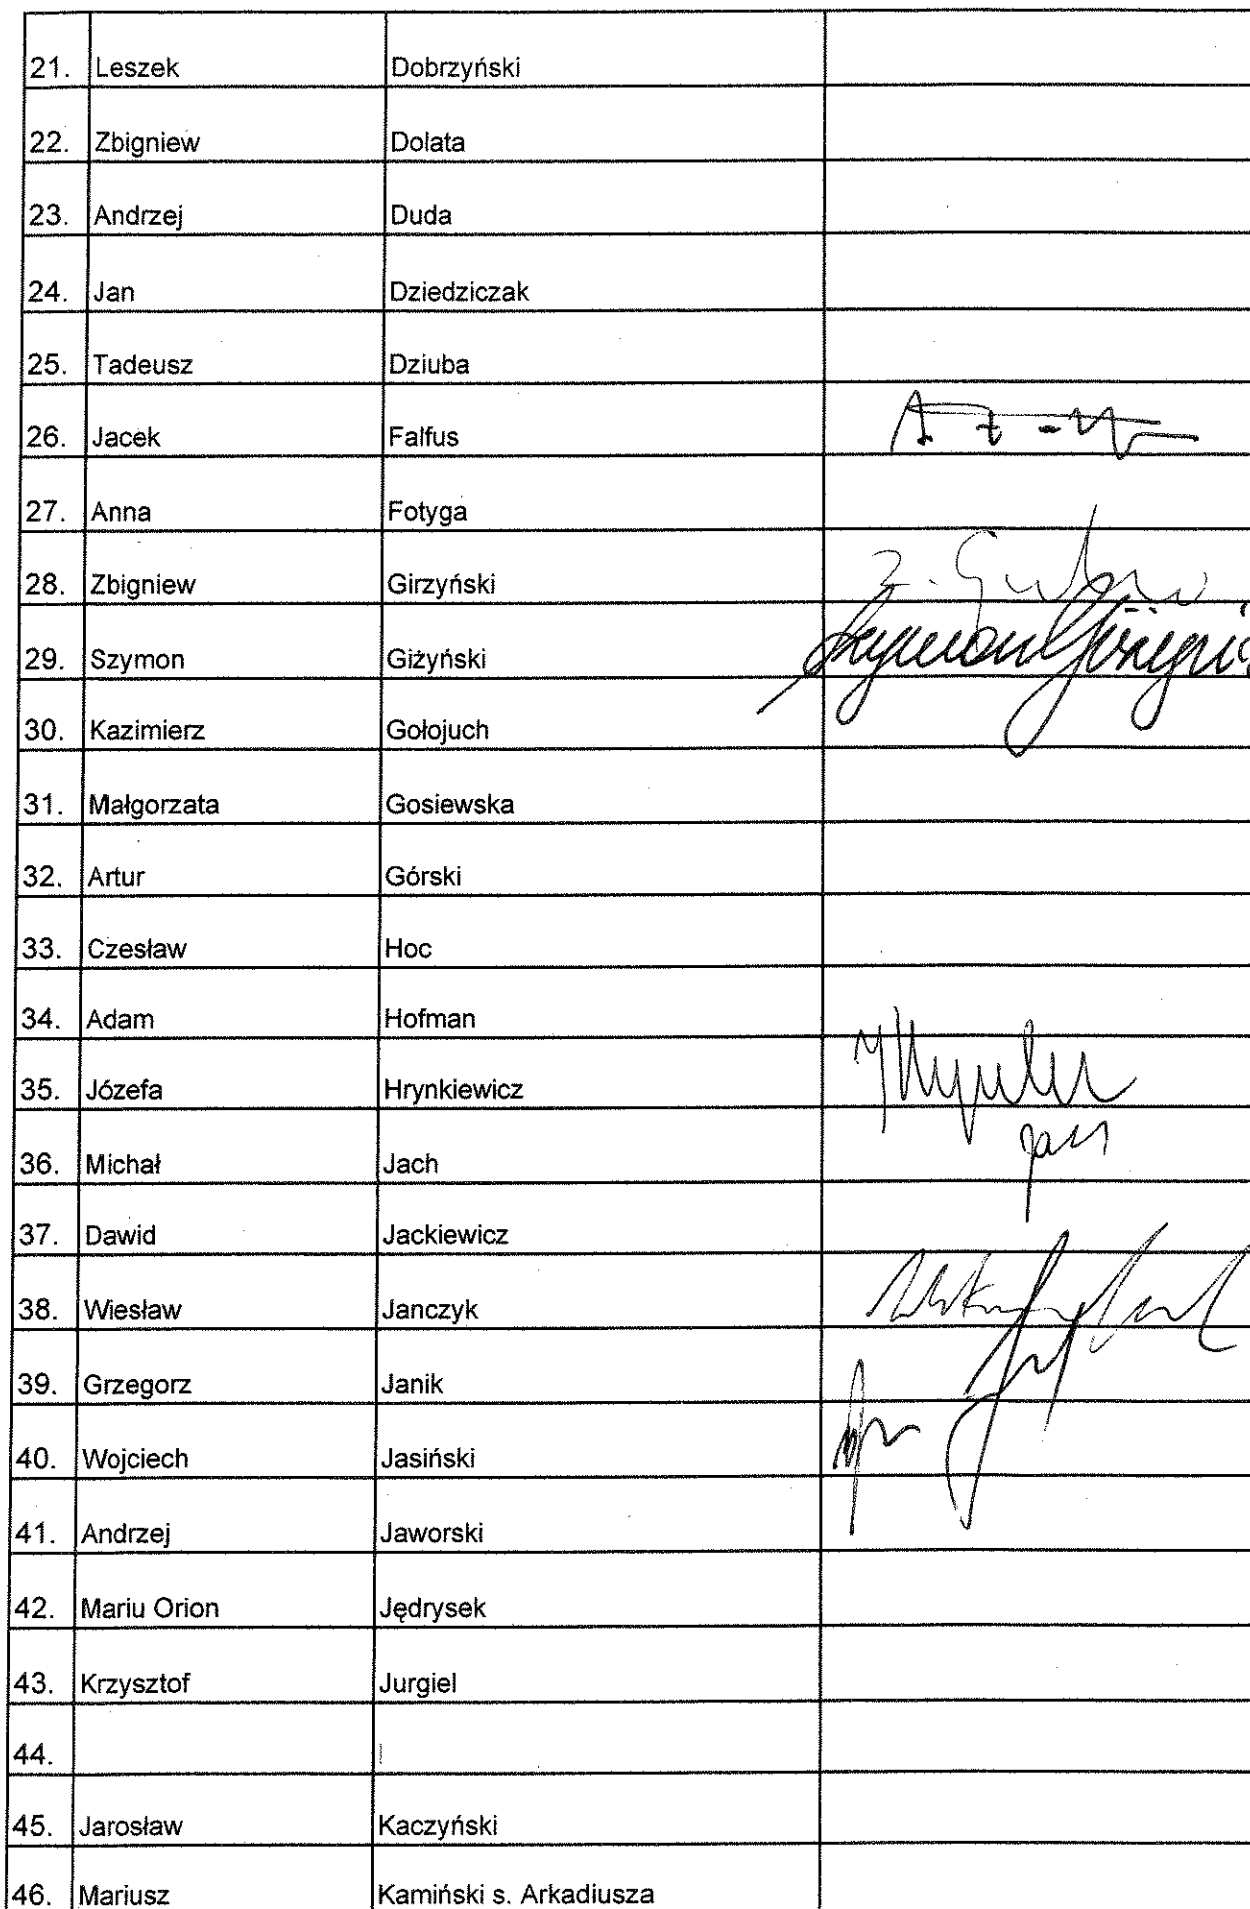 21. Leszek Dobrzyński
22. Zbigniew Dolata
23. Andrzej Duda
24. Jan Dziedziczak
25. Tadeusz Dziuba
26. Jacek Falfus
27. Anna Fotyga
28. Zbigniew Girzyński
29. Szymon Giżyński
30. Kazimierz Gołojuch
31. Małgorzata Gosiewska
32. Artur Górski
33. Czesław Hoc
34. Adam Hofman
35. Józefa Hrynkiewicz
36. Michał Jach
37. Dawid Jackiewicz
38. Wiesław Janczyk
39. Grzegorz Janik
40. Wojciech Jasiński
41. Andrzej Jaworski
42. Mariu Orion Jędrysek
43. Krzysztof Jurgiel
44.
45. Jarosław Kaczyński
46. Mariusz Kamiński s. Arkadiusza